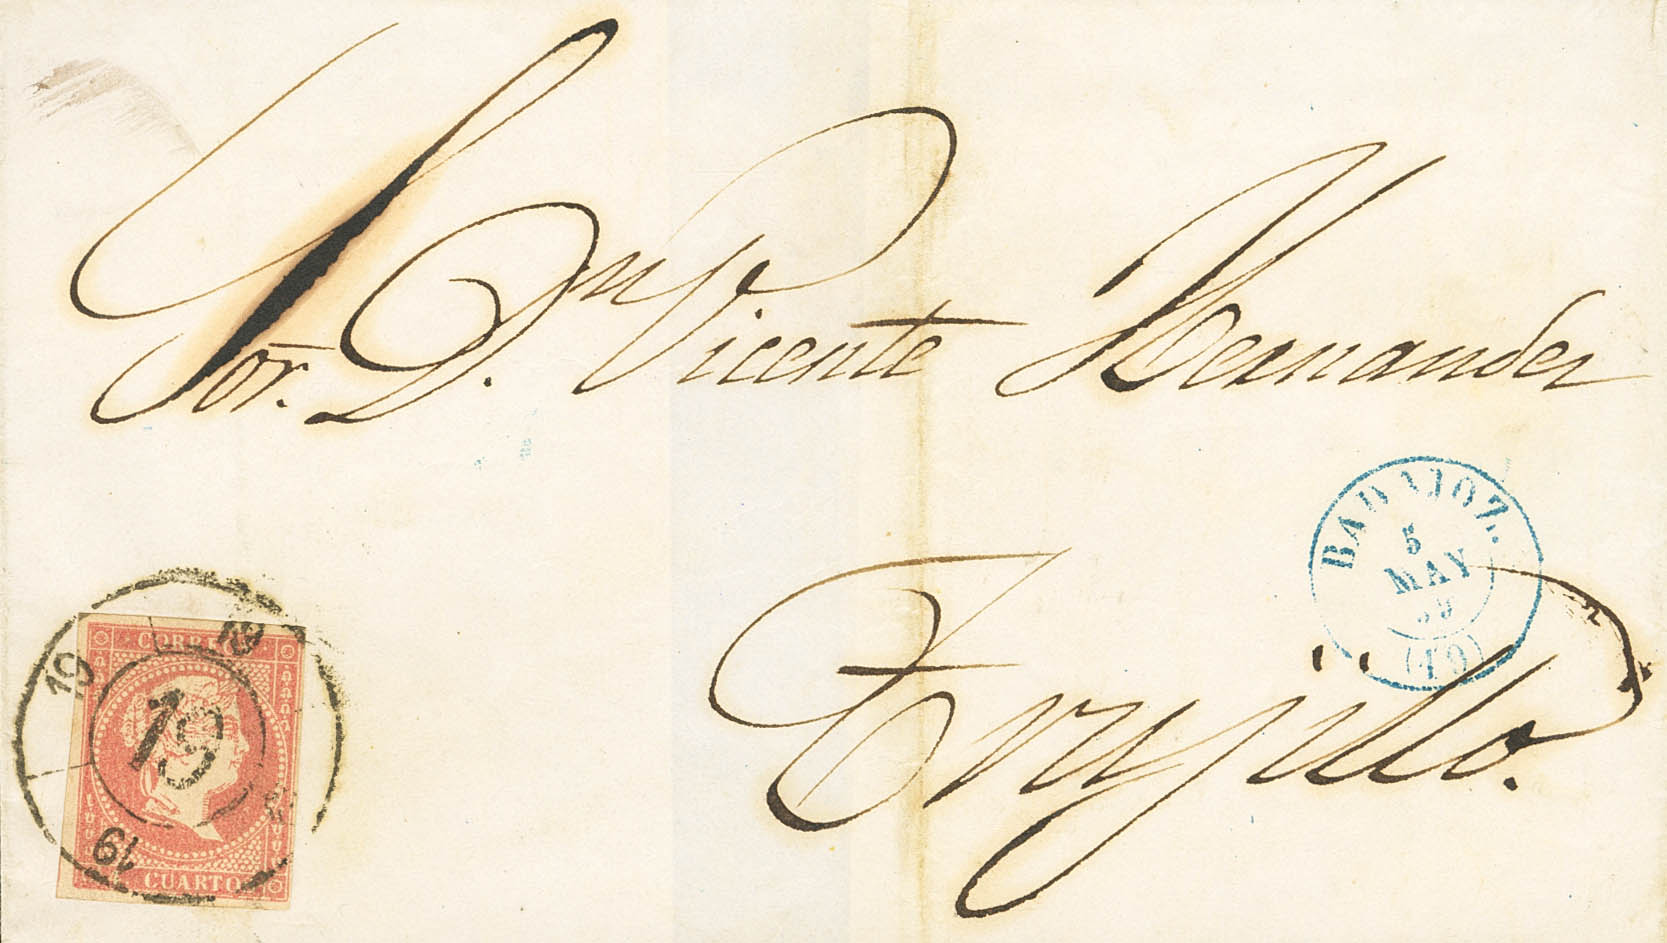 Sor. Dn Vicente Hernandez
BADAJOZ.
5
MAY
59
(19)
Trujillo.
CORREOS
19
19
19
19
CUARTOS